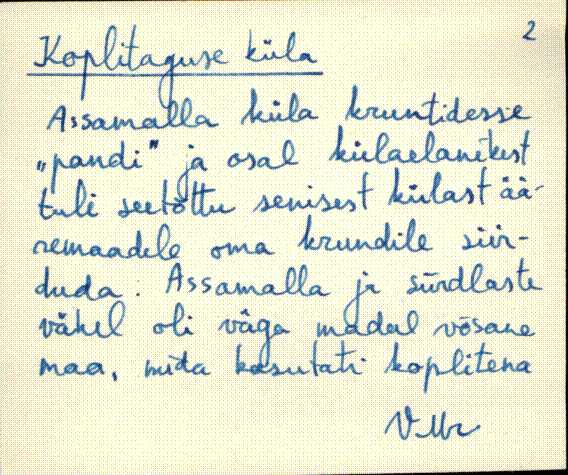 2
Koplitaguse küla
Assamalla küla kruntidesse
„pandi" ja osal külaelanikest
tuli seetõttu senisest külast ää-
remaadele oma krundile siir-
duda. Assamalla ja siirdlaste
vähel oli väga madal võsane
maa, mida kasutati koplitena
V Mr